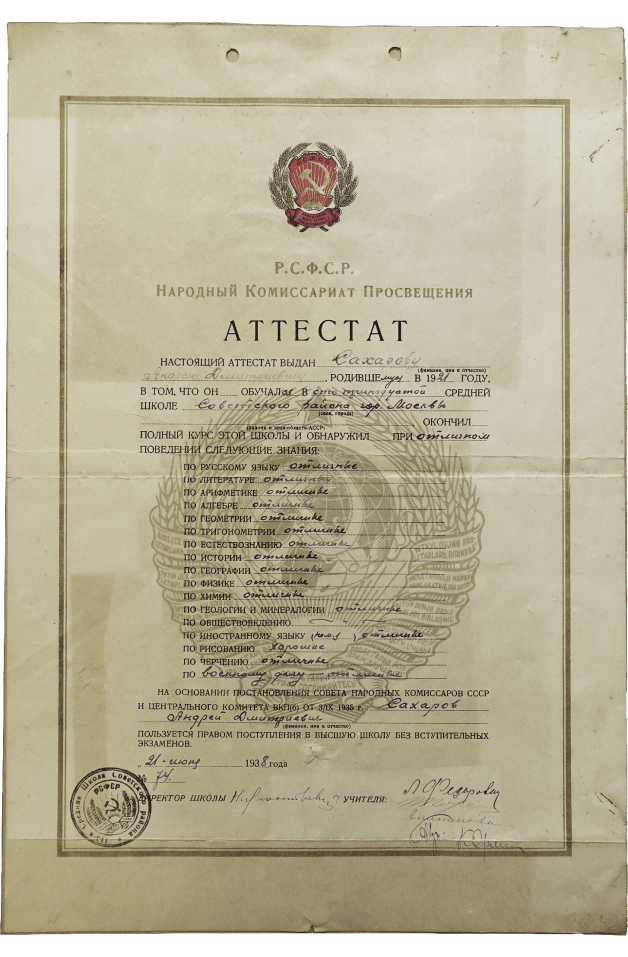 Р.С.Ф.С.Р.
НАРОДНЫЙ КОМИССАРИАТ ПРОСВЕЩЕНИЯ
АТТЕСТАТ
НАСТОЯЩИЙ АТТЕСТАТ ВЫДАН Сахарову
(фамилия, имя и отчество)
Андрею Дмитриевичу, РОДИВШЕмуся В 1921 ГОДУ,
В ТОМ, ЧТО ОН ОБУЧАЛся В сто тринадцатой СРЕДНЕЙ
ШКОЛЕ Советского района гор. Москвы
(села, города)
ОКОНЧИЛ
(района и края-области-АССР)
ПОЛНЫЙ КУРС ЭТОЙ ШКОЛЫ И ОБНАРУЖИЛ ПРИ отличном
ПОВЕДЕНИИ СЛЕДУЮЩИЕ ЗНАНИЯ:
ПО РУССКОМУ ЯЗЫКУ отличные
ПО ЛИТЕРАТУРЕ отличные
ПО АРИФМЕТИКЕ отличные
ПО АЛГЕБРЕ отличные
ПО ГЕОМЕТРИИ отличные
ПО ТРИГОНОМЕТРИИ отличные
ПО ЕСТЕСТВОЗНАНИЮ отличные
ПО ИСТОРИИ отличные
ПО ГЕОГРАФИИ отличные
ПО ФИЗИКЕ отличные
ПО ХИМИИ отличные
ПО ГЕОЛОГИИ И МИНЕРАЛОГИИ отличные
ПО ОБЩЕСТВОВЕДЕНИЮ
ПО ИНОСТРАННОМУ ЯЗЫКУ ( ) отличные
ПО РИСОВАНИЮ хорошие
ПО ЧЕРЧЕНИЮ отличные
ПО военному делу отличные
НА ОСНОВАНИИ ПОСТАНОВЛЕНИЯ СОВЕТА НАРОДНЫХ КОМИССАРОВ СССР
И ЦЕНТРАЛЬНОГО КОМИТЕТА ВКП(б) ОТ 3/IX 1935 г. Сахаров
Андрей Дмитриевич
(фамилия, имя и отчество)
ПОЛЬЗУЕТСЯ ПРАВОМ ПОСТУПЛЕНИЯ В ВЫСШУЮ ШКОЛУ БЕЗ ВСТУПИТЕЛЬНЫХ
ЭКЗАМЕНОВ.
„21" июня 1938 года
№ 74
ДИРЕКТОР ШКОЛЫ УЧИТЕЛЯ:
Средняя Школа Советского района
РСФСР